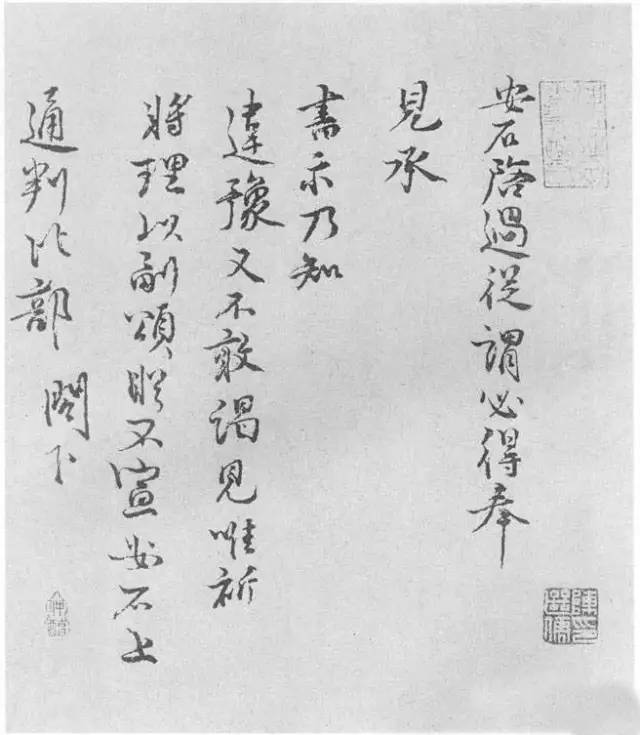 安石啓過從謂必得奉
見承
書示乃知
違豫又不敢謁見唯祈
將理以副頌眷不宣安石上
通判比部 閤下